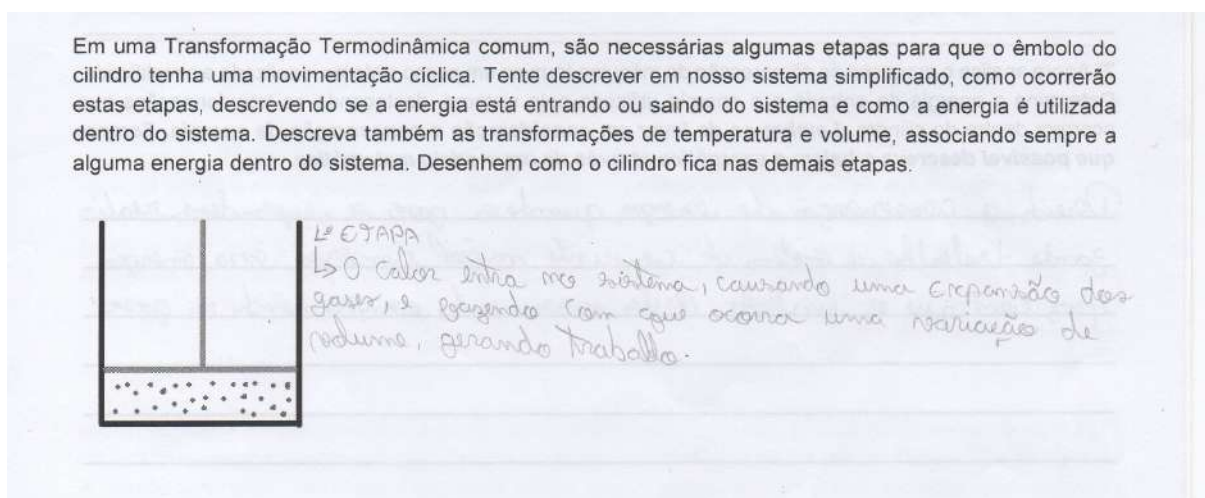 Em uma Transformação Termodinâmica comum, são necessárias algumas etapas para que o êmbolo do
cilindro tenha uma movimentação cíclica. Tente descrever em nosso sistema simplificado, como ocorrerão
estas etapas, descrevendo se a energia está entrando ou saindo do sistema e como a energia é utilizada
dentro do sistema. Descreva também as transformações de temperatura e volume, associando sempre a
alguma energia dentro do sistema. Desenhem como o cilindro fica nas demais etapas.
1ª ETAPA
↳ O calor entra no sistema, causando uma expansão dos
gases, e fazendo com que ocorra uma variação de
volume, gerando trabalho.